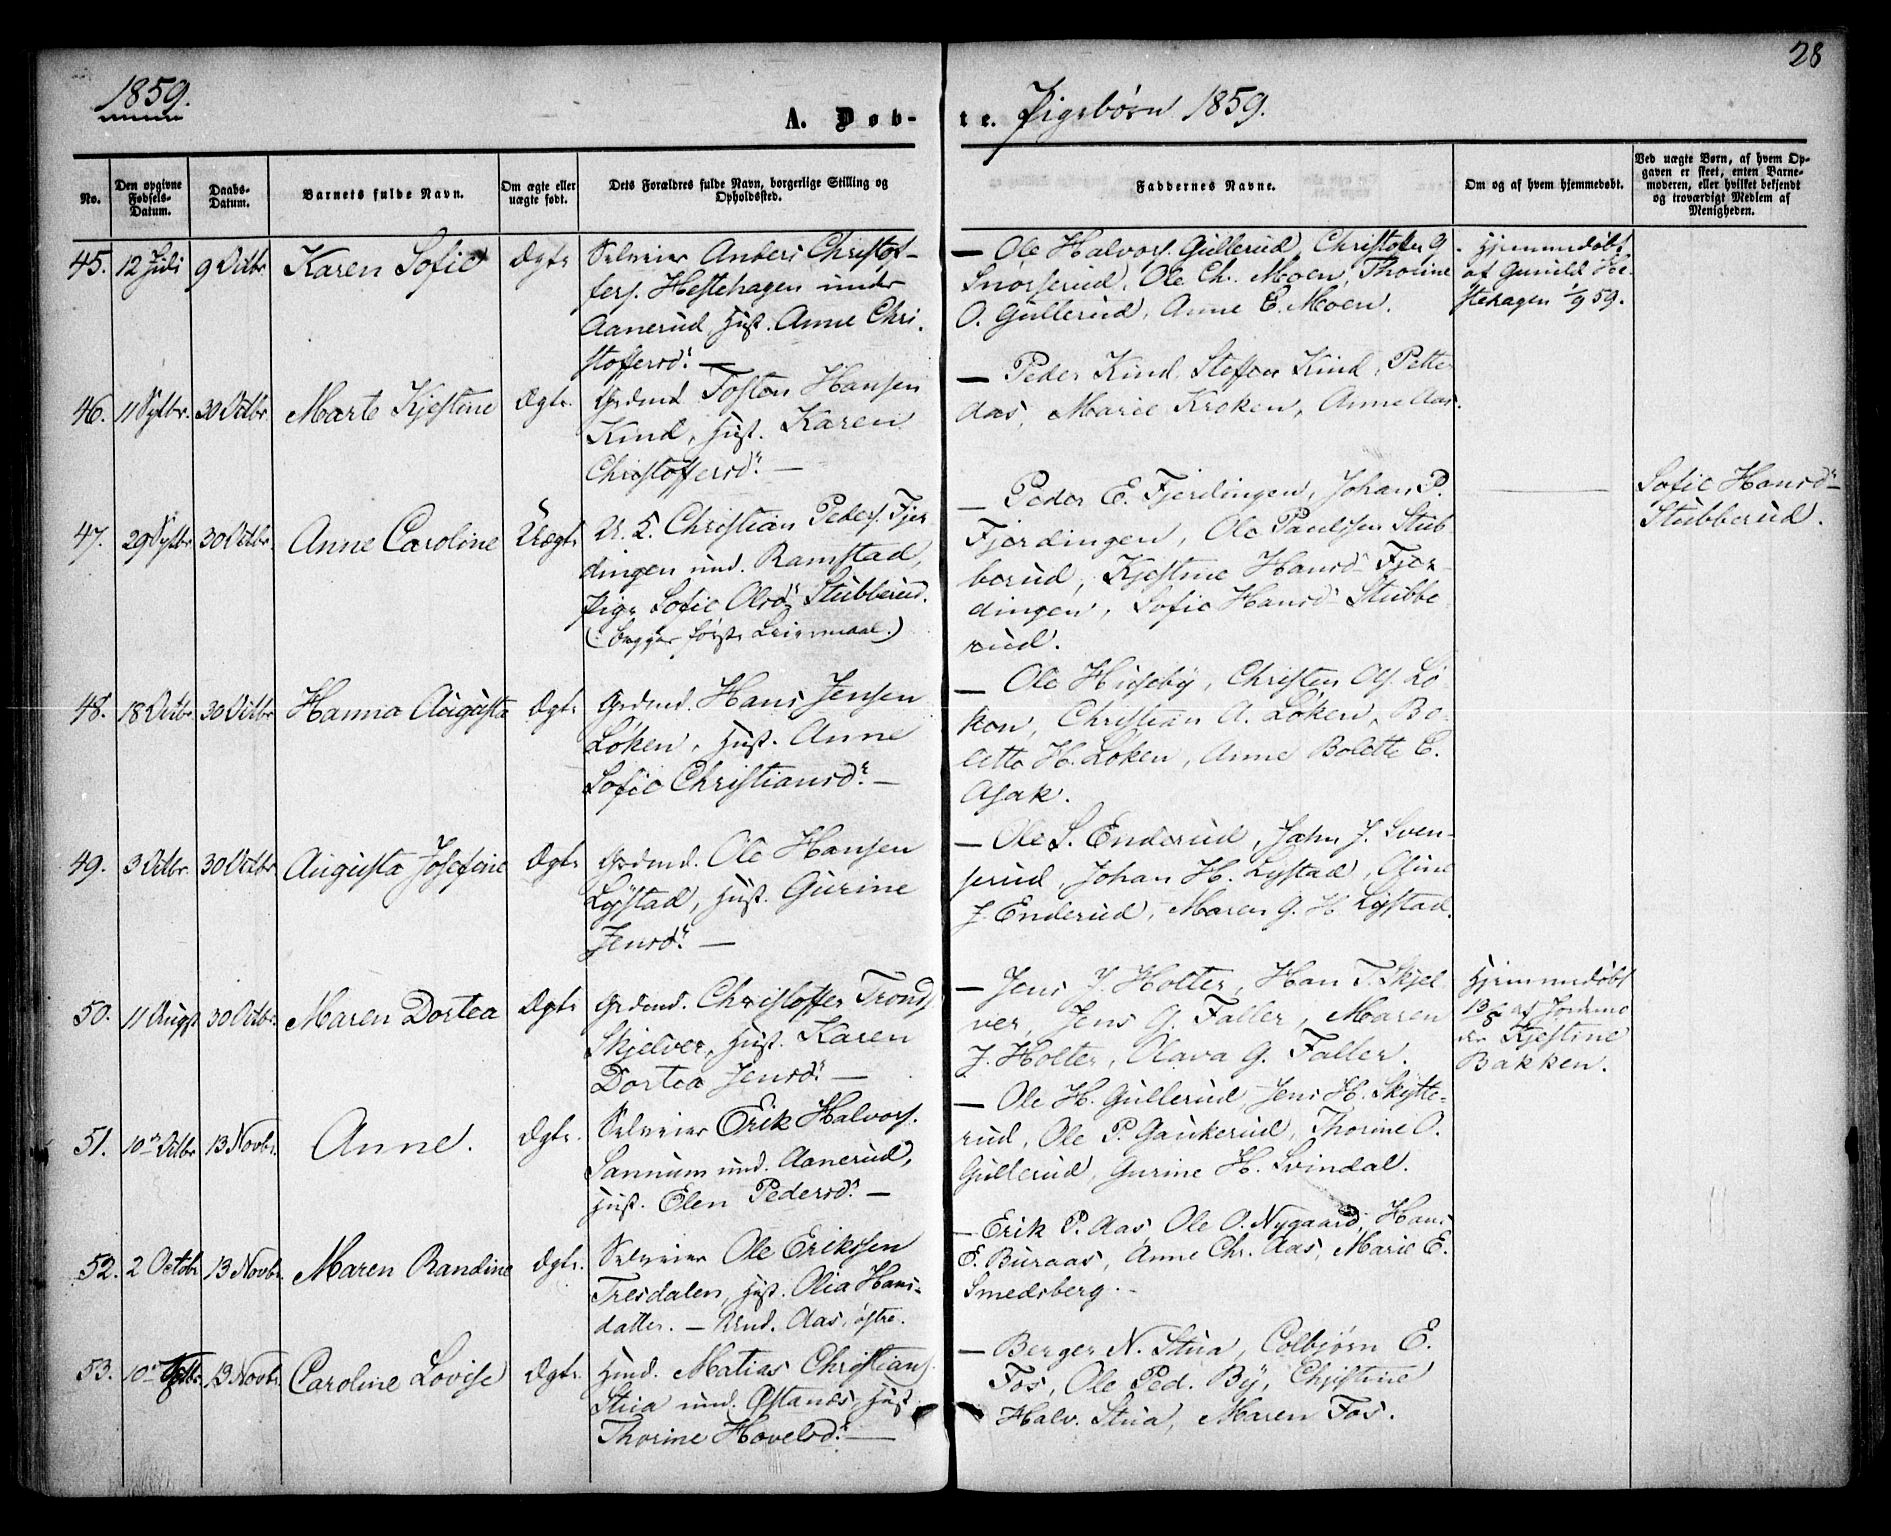 28
1859.
A. Døb-
te. Pigebørn 1859.
No.
Den opgivne Fødsels-Datum.
Daabs-Datum.
Barnets fulde Navn.
Om ægte eller uægte født.
Dets Forældres fulde Navn, borgerlige Stilling og Opholdssted.
Faddernes Navne.
Om og af hvem hjemmedøbt.
Ved uægte Børn, af hvem Opgaven er skeet, enten Barnemoderen, eller hvilket bekjendt og troværdigt Medlem af Menigheden.
45. 12 Juli 9 Octbr. Karen Sofie Ægte
Selveier Anders Christof-
fers. Hestehagen under
Aanerud, Hust. Anne Chri-
stoffersdr. —
— Ole Halvors. Gullerud, Christofer G.
Snorserud, Ole Chr. Moen, Thorine
O. Gullerud, Anne E. Moen.
Hjemmedøbt
af Gunild He-
stehagen 1/9 59.
46. 11 Septbr. 30 Octbr. Marte Kjestine Ægte.
Grdmd. Tosten Hansen
Kind, Hust. Karen
Christoffersdr. —
— Peder Kind, Steffen Kind, Petter
Aas, Marie Kroken, Anne Aas.
47. 29 Septbr. 30 Octbr. Anne Caroline Uægte
U. K. Christian Peders. Fjer
dingen und. Ramstad,
Pige Sofie Olsdr. Stubberud.
(: begges første Leiermaal.)
— Peder E. Fjerdingen, Johan P.
Fjerdingen, Ole Paulssen Stub
berud, Kjestine Hansdr. Fjer-
dingen, Sofie Hansdr. Stubbe
rud.
Sofie Hansdr.
Stubberud.
48. 18 Octbr. 30 Octbr. Hanna Augusta Ægte
Grdmd. Hans Jensen
Løken, Hust. Anne
Sofie Christiansdr. —
— Ole Huseby, Christen Ols. Lø
ken, Christian A. Løken, Bo-
lette H. Løken, Anne Bolette C.
Asak.
49. 3 Octbr. 30 Octbr. Augusta Josefine Ægte
Grdmd. Ole Hansen
Lystad, Hust. Gurine
Jensdr. —
— Ole S. Enderud, Jahn J. Sven-
serud, Johan H. Lystad, Oline
J. Enderud, Maren G. H. Lystad.
50. 11 August 30 Octbr. Maren Dortea Ægte
Grdmd. Christoffer Tronds.
Skjelver, Hust. Karen
Dortea Jensdr. —
— Jens J. Holter, Han T. Skjel
ver, Jens G. Faller, Maren
J. Holter, Olava G. Faller.
Hjemmedøbt
13/8 af Jordemo
der Kjestine
Bakken.
51. 10de Octbr. 13 Novbr. Anne. Ægte.
Selveier Erik Halvors.
Sannum und. Aanerud,
Hust. Elen Pedersdr. —
— Ole H. Gullerud, Jens H. Skytte-
rud, Ole P. Gaukerud, Thorine O.
Gullerud, Gurine H. Svindal.
52. 2 Octobr. 13 Novbr. Maren Randine Ægte.
Selveier Ole Erikssen
Tresdalen, Hust. Olia Hans-
datter. — Und. Aas, østre.
— Erik P. Aas, Ole O. Nygaard, Hans
E. Buraas, Anne Chr. Aas, Marie E.
Smedsberg. —
53. 10de Septbr. 13 Novbr. Caroline Lovise Ægte.
Husmd. Matias Christians.
Stua und. Østands, Hust.
Thorine Hovelsdr. —
— Berger N. Stua, Colbjørn E.
Fos, Ole Ped. By, Christine
Halv. Stua, Maren Fos.